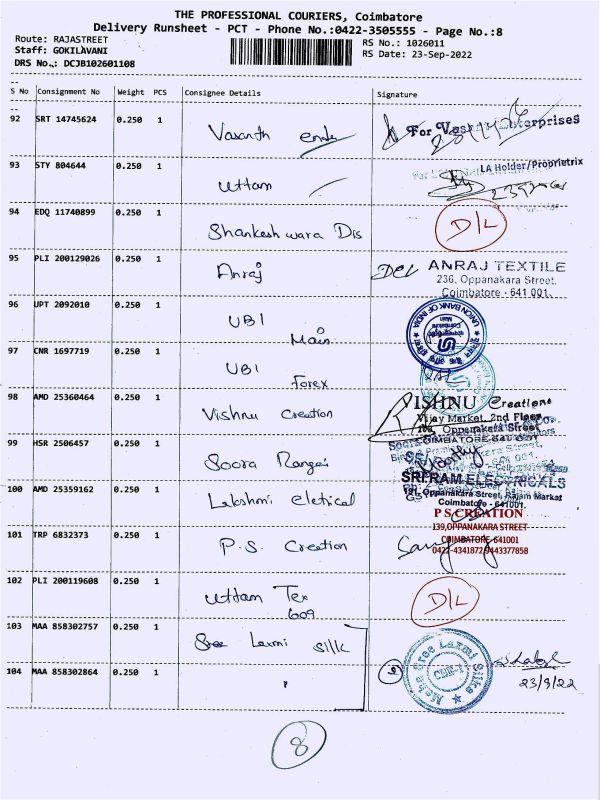 THE PROFESSIONAL COURIERS, Coimbatore
Delivery Runsheet - PCT - Phone No.:0422-3505555 - Page No.:8
Route: RAJASTREET
Staff: GOKILAVANI
DRS No.: DCJB102601108
RS No.: 1026011
RS Date: 23-Sep-2022
S No Consignment No Weight PCS Consignee Details Signature
92 SRT 14745624 0.250 1 Vasanth For Enterprises
93 STY 804644 0.250 1 Uttam LA Holder/Proprietrix
94 EDQ 11740899 0.250 1 Shankeshwara Dis D/L
95 PLI 200129026 0.250 1 Anraj ANRAJ TEXTILE
236, Oppanakara Street,
Coimbatore - 641 001.
96 UPT 2092010 0.250 1 UBI Main UNION BANK OF INDIA
97 CNR 1697719 0.250 1 UBI Forex
98 AMD 25360464 0.250 1 Vishnu Creation VISHNU Creations
Vijay Market, 2nd Floor,
Oppanakara Street
99 HSR 2506457 0.250 1 Soora
100 AMD 25359162 0.250 1 Lakshmi eletrical SRI RAM ELECTRICALS
191, Oppanakara Street, Rajam Market
Coimbatore - 641001.
101 TRP 6832373 0.250 1 P.S. Creation P S CREATION
139,OPPANAKARA STREET
COIMBATORE-641001
0422-4341872,9443377858
102 PLI 200119608 0.250 1 Uttam Tex D/L
609
103 MAA 858302757 0.250 1 Sree Laxmi Silk
104 MAA 858302864 0.250 1 " 2 Sree Laxmi Silks
23/9/22
8